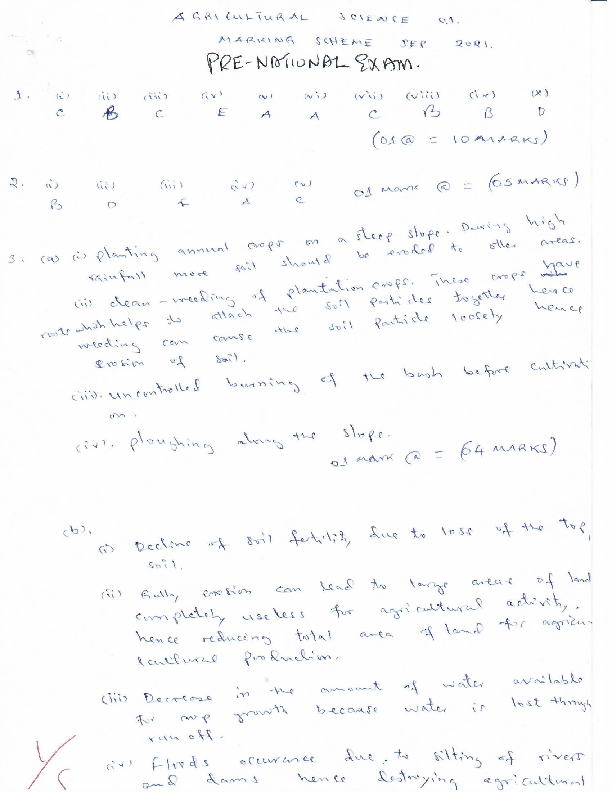 AGRICULTURAL SCIENCE 01.
MARKING SCHEME SEP 2021.
PRE-NATIONAL EXAM.
1. (i) (ii) (iii) (iv) (v) (vi) (vii) (viii) (ix) (x)
C B C E A A C B B D
(01 @ = 10 MARKS)
2. (i) (ii) (iii) (iv) (v) 01 mark @ = (05 MARKS)
B D E A C
3. (a) (i) planting annual crops on a steep slope. During high
rainfall more soil should be eroded to other areas.
(ii) clean-weeding of plantation crops. These crops have
roots which helps to attach the soil particles together hence
weeding can cause the soil particle loosely hence
erosion of soil.
(iii). uncontrolled burning of the bush before cultivati
on.
(iv). ploughing along the slope.
01 mark @ = (04 MARKS)
(b).
(i) Decline of soil fertility due to loss of the top
soil.
(ii) Gully erosion can lead to large areas of land
completely useless for agricultural activity,
hence reducing total area of land for agricu-
lcultural production.
(iii) Decrease in the amount of water available
for crop growth because water is lost through
run off.
(iv) Floods occurance due to silting of rivers
and dams hence destroying agricultural